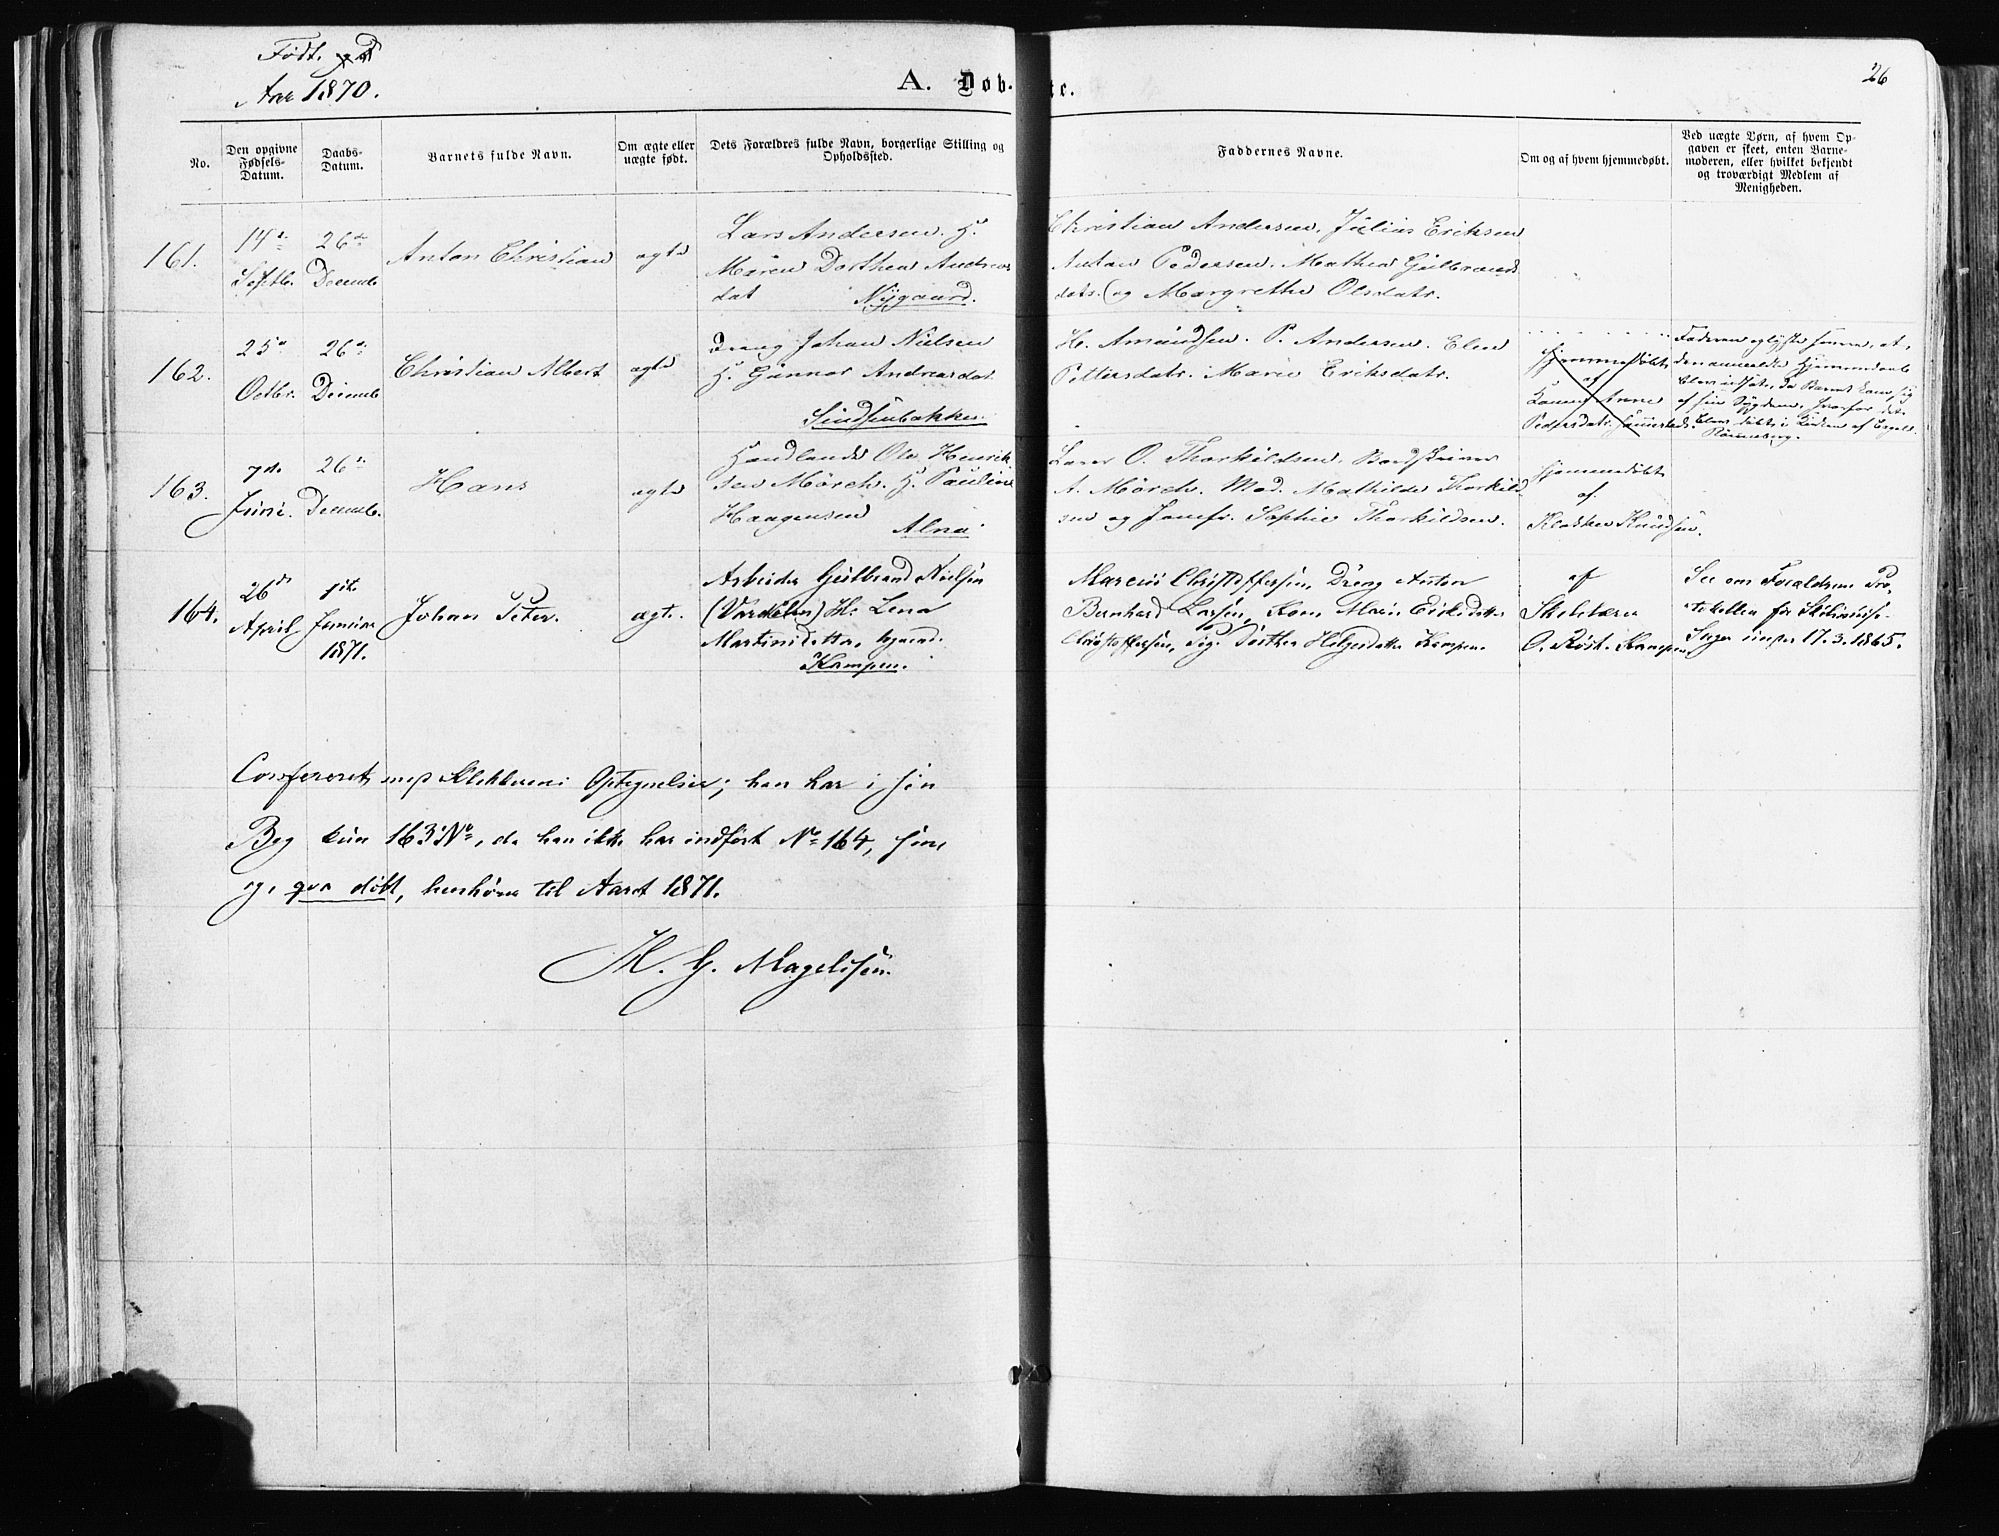 Født
Aar 1870.
A. Døb-te.
26
No.
Den opgivne Fødsels-Datum.
Daabs-Datum.
Barnets fulde Navn.
Om ægte eller uægte født.
Dets Forældres fulde Navn, borgerlige Stilling og Opholdssted.
Faddernes Navne.
Om og af hvem hjemmedøbt.
Ved uægte Børn, af hvem Opgaven er skeet, enten Barnemoderen, eller hvilket bekjendt og troværdigt Medlem af Menigheden.
161.
14de
Septbr.
26de
Decemb.
Anton Christian
ægte
Lars Andersen. H.
Maren Dorthea Andreas
dat Nygaard.
Christian Andersen. Julius Eriksen
Anton Pedersen. Mathea Gulbrands
datr. og Margrethe Olsdatr.
162.
25de
Octbr.
26de
Decemb.
Christian Albert
ægte
Dreng Johan Nielsen
H. Gunnor Andreasdat.
H. Amundsen. P. Andersen. Elen
Pettersdatr. Marie Eriksdatr.
Hjemmedøbt
af
Konne Anne
Pedersdatr.
163.
7de
Juni.
26de
Decemb.
Hans
ægte
Handlende Ole Henrik
sen Mørch. H. Pauline
Haagensen
Alna
Lærer O. Thorkildsen.
A. Mørch. Mad. Mathilde Thorkild
sen og Jomfr. Sophie Thorkildsen.
Hjemmedøbt
af
Klokker Knudsen.
164.
26de
April
1ste
Januar
1871.
Johan Peter.
ægte.
Arbeider Gulbrand Nielsen
H. Lena
Martinsdatter,
Kampen.
Marcus Christoffersen, Dreng Anton
Bernhard Larsen, Kone Marie Eriksdatter
Christoffersen, Pig. Dorthea Holgersdatter Kampen.
af
Skolelærer
O. Røst. Kampen
See om Forældrene Pro-
tokollen for Skilsmisse-
Sager under 17.3.1865.
Confereret med Klokkerens Optegnelser; han har i sin
Bog kun 163 No, da han ikke har indført No 164, som
og, qva døbt, henhører til Aaret 1871.
H. G. Magelssen.